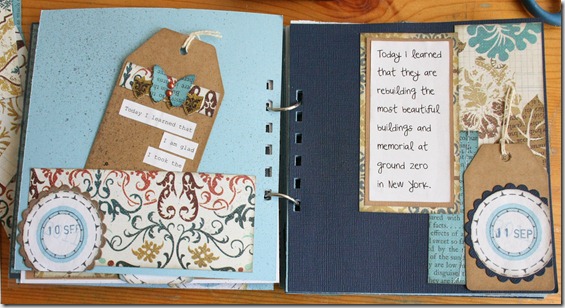 Today I learned that
I am glad
I took the
10 SEP
Today I learned
that they are
rebuilding the
most beautiful
buildings and
memorial at
ground zero
in New York.
11 SEP